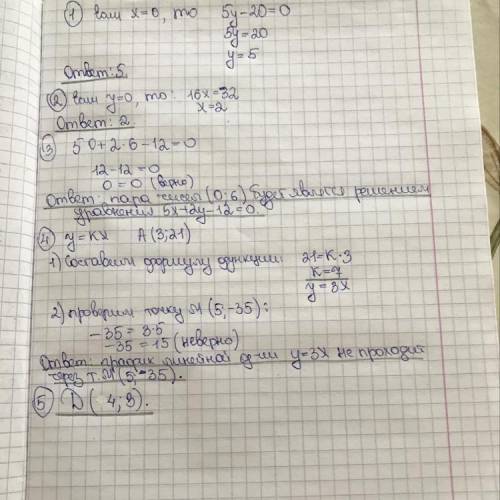 ① если x=0, то 5y-20=0
5y=20
y=5
Ответ: 5.
② если y=0, то: 16x=32
x=2
Ответ: 2.
③ 5·0+2·6-12=0
12-12=0
0=0 (верно)
Ответ: пара чисел (0;6) будет являться решением
уравнения 5x+2y-12=0.
④ y=kx A(3;21)
1) Составим формулу функции: 21=k·3
k=7
y=3x
2) проверим точку M(5;-35):
-35=3·5
-35=15 (неверно)
Ответ: график линейной ф-ии y=3x не проходит
через т. M(5;-35).
⑤ D(4;9).